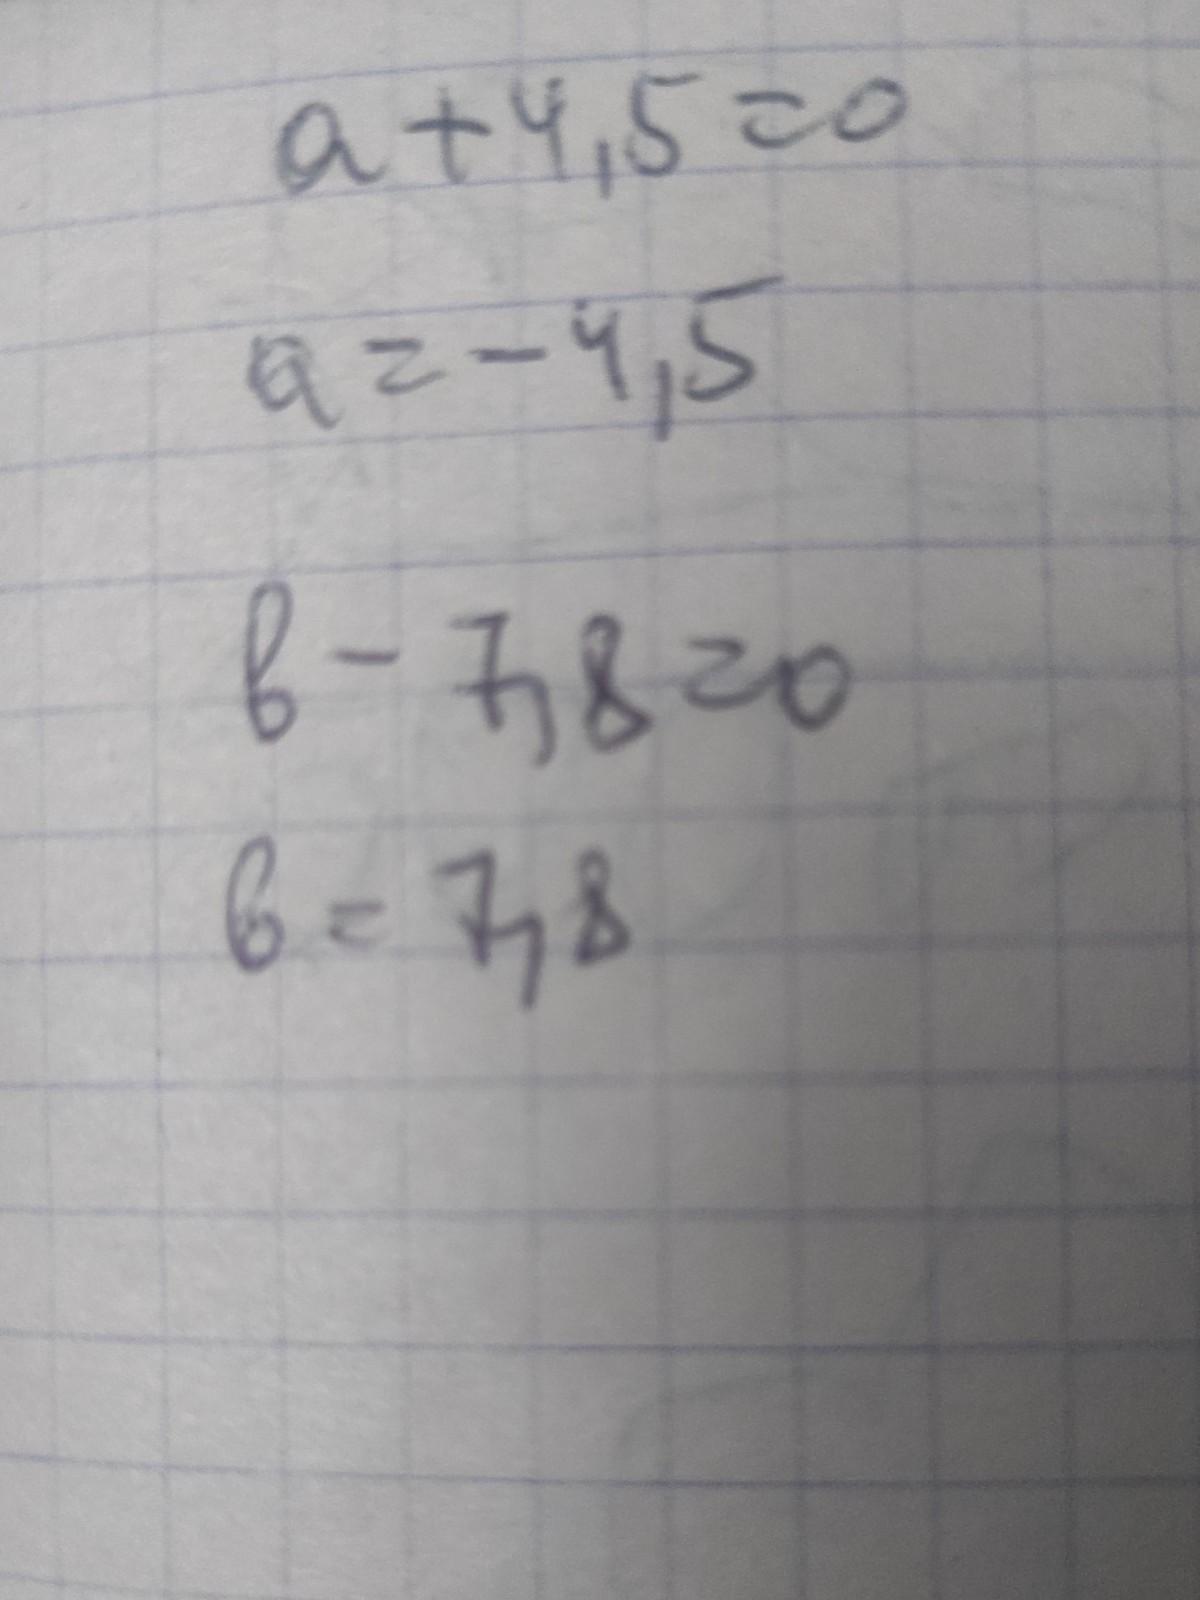 a + 4,5 = 0
a = - 4,5
в - 7,8 = 0
в = 7,8